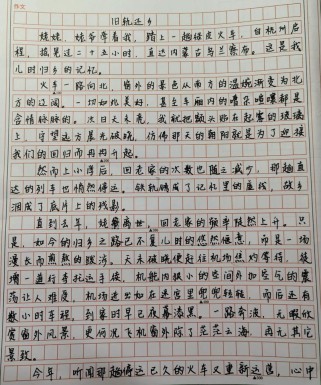 作文
旧轨还乡
姥姥、姥爷牵着我，踏上一趟绿皮火车，自杭州启
程，摇晃过二十五小时，直达内蒙古乌兰察布。这是我
儿时归乡的记忆。
火车一路向北，窗外的景色从南方的温婉渐变为北
方的辽阔。一切如此美好，甚至车厢内的嘈杂喧嚷都是
含情脉脉的。次日天未亮，我就把额头贴在起雾的玻璃
上，守望远方晨光破晓，仿佛那天的朝阳就是为了迎接
我们的回归而冉冉升起。
然而上小学后，回老家的次数也随之减少，那趟直
达的列车也悄然停运。铁轨成了记忆里的虚线，故乡
洇成了底片上的残影。
直到去年，姥爷离世，回老家的频率陡然上升。只
是，如今的归乡之路已不复儿时的悠然惬意，而是一场
漫长而煎熬的跋涉。天未破晓便赶往机场焦灼等待，接
着一道行李托运手续，机舱内狭小的空间外加空气的震
荡让人难受，机场进出如在迷宫里兜兜转转，而后还有
数小时车程，到家时早已夜幕漆黑。一路奔波，无暇欣
赏窗外风景，更何况飞机窗外除了茫茫云海，再无其它
景致。
今年，听闻那趟停运已久的火车又重新运营，心中